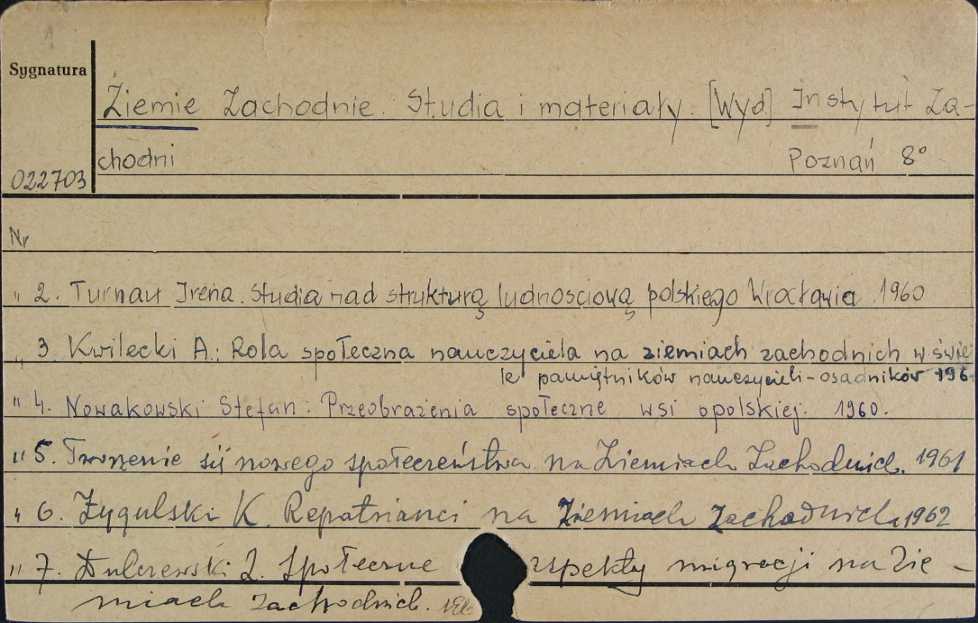 1
Sygnatura
Ziemie Zachodnie. Studia i materiały. [Wyd] Instytut Za-
chodni Poznań 8°
022703
Nr
" 2. Turnau Irena. Studia nad strukturą ludnosciową polskiego Wrocławia 1960
" 3. Kwilecki A.: Rola społeczna nauczyciela na ziemiach zachodnich w świe
le pamiętników nauczycieli-osadników 196
" 4. Nowakowski Stefan: Przeobrażenia społeczne wsi opolskiej. 1960.
" 5. Tworzenie się nowego społeczeństwa na Ziemiach Zachodnich. 1961
" 6. Żygulski K. Repatrianci na Ziemiach Zachodnich 1962
" 7. Dulczewski Z. Społeczne aspekty migracji na Zie-
miach Zachodnich.